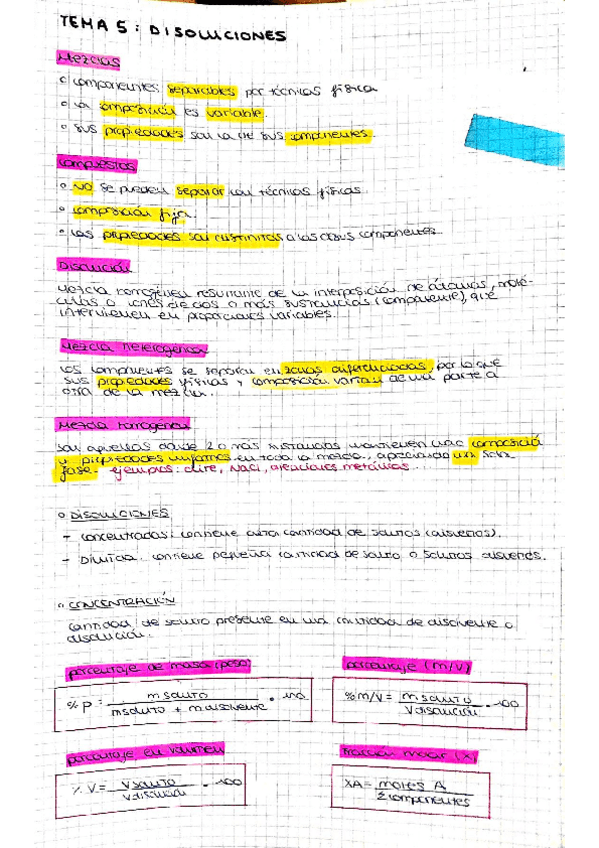 TEMA 5: DISOLUCIONES
Mezclas
componentes separables por técnicas física
la composición es variable.
sus propiedades son la de sus componentes.
Compuestos
no se pueden separar con técnicas físicas.
composición fija.
las propiedades son distintas a las de sus componentes.
Disolución
Mezcla homogénea resultante de la interposición de átomos, molé-
culas o iones de dos o más sustancias (componente), que
intervienen en proporciones variables.
Mezcla heterogénea
los componentes se separan en zonas diferenciadas, por lo que
sus propiedades físicas y composición varían de una parte a
otra de la mezcla.
Mezcla homogénea
Son aquellas donde 2 o más sustancias mantienen una composición
y propiedades uniformes en toda la mezcla, apreciando un sola
fase. ejemplos: aire, NaCl, aleaciones metálicas...
DISOLUCIONES
- concentrados: contiene alta cantidad de solutos (disueltos).
- Diluida: contiene pequeña cantidad de soluto o solutos disueltos.
CONCENTRACIÓN
cantidad de soluto presente en una cantidad de disolvente o
disolución.
porcentaje de masa (peso)
% p = m soluto / m soluto + m disolvente · 100
porcentaje (m/V)
% m/V = m soluto / V disolución · 100
porcentaje en volumen
% V = V soluto / V disolución · 100
Fracción molar (X)
XA = moles A / Σ componentes